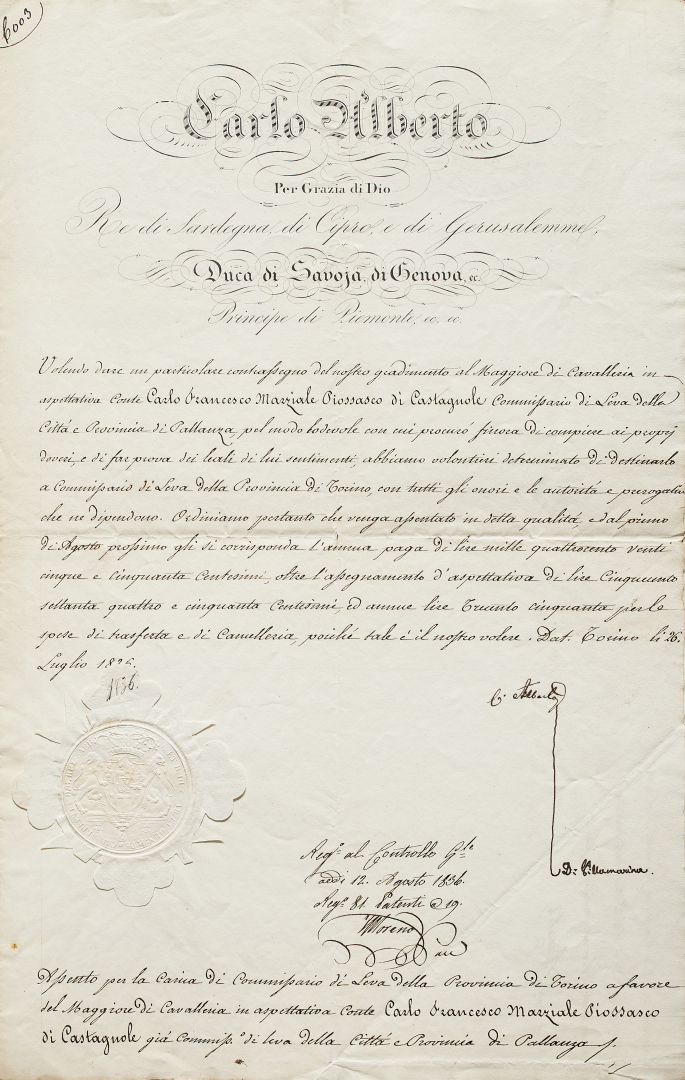 6003
Carlo Alberto
Per Grazia di Dio
Re di Sardegna, di Cipro, e di Gerusalemme,
Duca di Savoja, di Genova, ec.
Principe di Piemonte, ec. ec.
Volendo dare un particolare contrassegno del nostro gradimento al Maggiore di Cavalleria in
aspettativa Conte Carlo Francesco Marziale Piossasco di Castagnole Commissario di Leva della
Città e Provincia di Pallanza, pel modo lodevole con cui procurò finora di compiere ai proprj
doveri, e di far prova dei leali di lui sentimenti, abbiamo volontieri determinato di destinarlo
a Commissario di Leva della Provincia di Torino, con tutti gli onori e le autorità e prerogative
che ne dipendono. Ordiniamo pertanto che venga assentato in detta qualità, e dal primo
di Agosto prossimo gli si corrisponda l'annua paga di lire mille quattrocento venti
cinque e cinquanta Centesimi, oltre l'assegnamento d'aspettativa di lire Cinquecento
settanta quattro e cinquanta Centesimi, ed annue lire Trecento cinquanta per le
spese di trasferta e di Cancelleria, poiché tale è il nostro volere. Dat. Torino li 26.
Luglio 1826.
1836.
C. Alberto
Di Villamarina.
Reg.º al Controllo G.le
addì 12. Agosto 1836.
Reg.º 81. Patenti a 19.
Moreno
Assento per la carica di Commissario di Leva della Provincia di Torino a favore
del Maggiore di Cavalleria in aspettativa Conte Carlo Francesco Marziale Piossasco
di Castagnole già Commiss.º di leva della Città e Provincia di Pallanza